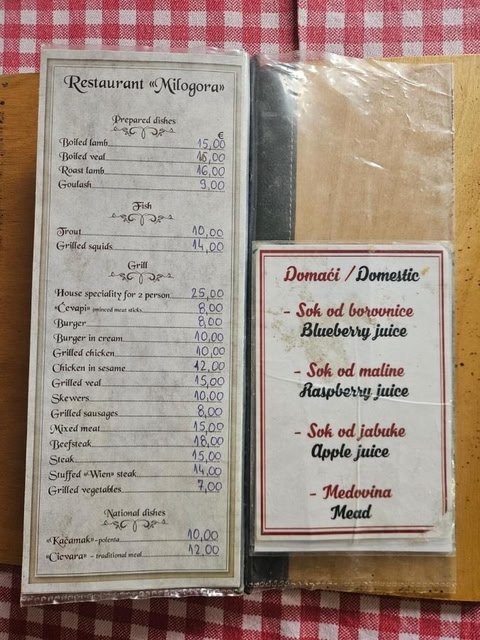 Restaurant «Milogora»
Prepared dishes
€
Boiled lamb 15,00
Boiled veal 15,00
Roast lamb 16,00
Goulash 9,00
Fish
Trout 10,00
Grilled squids 14,00
Grill
House speciality for 2 person 25,00
«Ćevapi» -minced meat sticks 8,00
Burger 8,00
Burger in cream 10,00
Grilled chicken 10,00
Chicken in sesame 12,00
Grilled veal 15,00
Skewers 10,00
Grilled sausages 8,00
Mixed meat 15,00
Beefsteak 18,00
Steak 15,00
Stuffed «Wien» steak 14,00
Grilled vegetables 7,00
National dishes
«Kačamak» -polenta 10,00
«Cicvara» - traditional meal 12,00
Domaći / Domestic
- Sok od borovnice
Blueberry juice
- Sok od maline
Raspberry juice
- Sok od jabuke
Apple juice
- Medovina
Mead